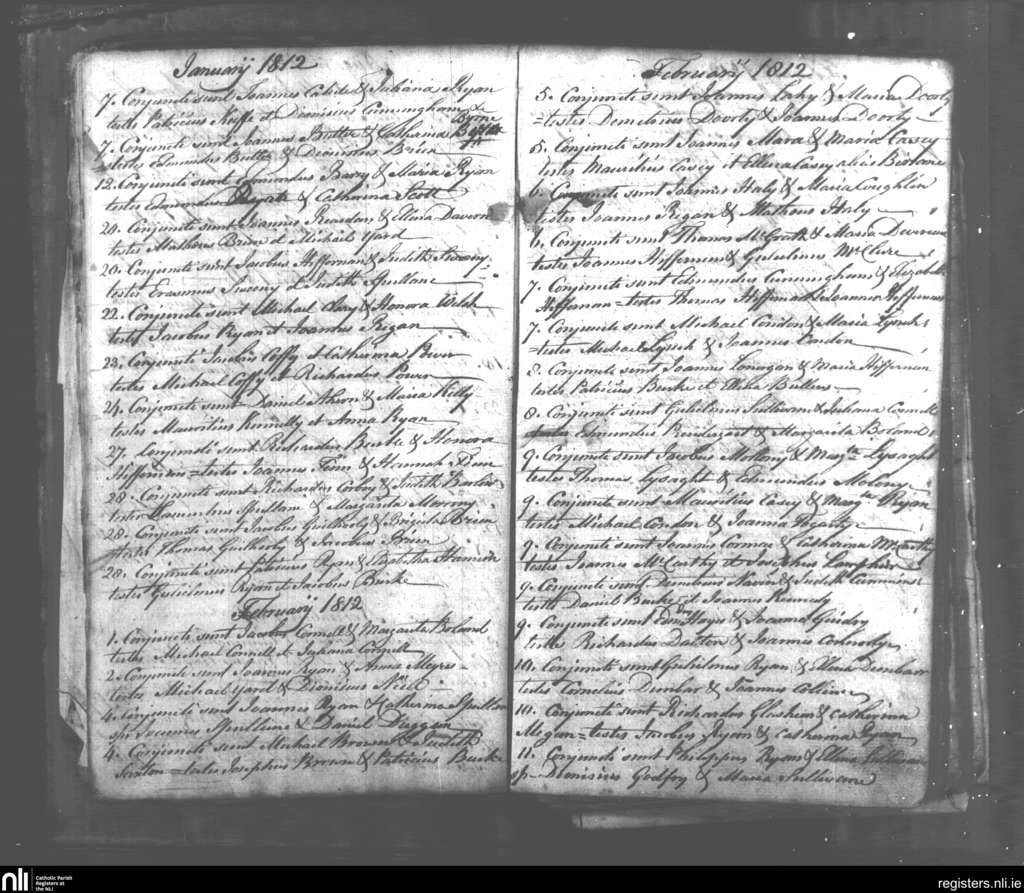 Januarij 1812
7. Conjuncti sunt Joannes & Juliana Ryan
testes Patricius Keeffe et Dionisius Cuningham
7. Conjuncti sunt Joannes Butler & Catharina Byrne
testes Edmundus Butler & Dionisius Brien
12. Conjuncti sunt Edmundus Barry & Maria Ryan
testes Edmundus & Catharina Scott
20. Conjuncti sunt Joannes Reardon & Ellena Davern
testes Mathaeus Brien et Michael Yard
20. Conjuncti sunt Jacobus Heffernan & Judith Sweeny
testes Erasmus Sweeny et Judith Spillane
22. Conjuncti sunt Michael Clary & Honora Welsh
testes Jacobus Ryan et Joannes Regan
23. Conjuncti Jacobus Coffy et Catharina Power
testes Michael Coffy et Richardus Power
24. Conjuncti sunt Daniel Ahern & Maria Kelly
testes Mauritius Kennelly et Anna Ryan
27. Conjuncti sunt Richardus Burke & Honora
Heffernan = testes Joannes Finn & Hannah Finn
28. Conjuncti sunt Richardus Corboy & Judith
testes Spillane & Margarita Morrony
28. Conjuncti sunt Jacobus Guilhooly & Brigida Brien
testes Thomas Guilhooly & Jacobus Brien
28. Conjuncti sunt Ryan & Elizabetha
testes Gulielmus Ryan et Jacobus Burke
Februarij 1812
1. Conjuncti sunt Jacobus Connell & Margarita Boland
testes Michael Connell & Juliana Connell
2. Conjuncti sunt Joannes Ryan & Anna Meyres
testes Michael Yard & Dionisius Neill
4. Conjuncti sunt Joannes Ryan & Catharina Spillane
sp. Joannes Spillane & Daniel Duggan
4. Conjuncti sunt Michael Brown & Judith
Sexton = testes Josephus Brown & Patricius Burke
Februarij 1812
5. Conjuncti sunt Joannes Lahy & Maria Doorly
= testes Demetrius Doorly & Joannes Doorly
5. Conjuncti sunt Joannes Mara & Maria Casey
testes Mauritius Casey et Ellena Casey alias
6. Conjuncti sunt Joannes Haly & Maria Coughlin
testes Joannes Regan & Matheus Haly
6. Conjuncti sunt Thomas McGrath & Maria Devereux
testes Joannes Heffernan & Gulielmus McClure
7. Conjuncti sunt Edmundus Cuningham & Elizabeth
Heffernan = testes Thomas Heffernan & Joannes Heffernan
7. Conjuncti sunt Michael Condon & Maria Lynch
= testes Michael Lynch & Joannes Condon
8. Conjuncti sunt Joannes Lonergan & Maria Heffernan
testes Patricius Burke et Ellena Bullens
8. Conjuncti sunt Gulielmus Sullivan & Juliana Connell
testes Edmundus Prendergast & Margarita Boland
9. Conjuncti sunt Jacobus Mollony & Margta Lysaght
testes Thomas Lysaght & Edmundus Molony
9. Conjuncti sunt Mauritius Casey & Margta Ryan
testes Michael Condon & Joanna Fogarty
9. Conjuncti sunt Joannes Cormac & Catharina McCarthy
testes Joannes McCarthy et Josephus Lanphier
9. Conjuncti sunt & Judith Cummins
testes Daniel Burke et Joannes Kennedy
9. Conjuncti sunt Hayes & Joanna Guidoy
testes Richardus Dalton & Joannes
10. Conjuncti sunt Gulielmus Ryan & Ellena Dunbar
testes Cornelius Dunbar & Joannes Collins
10. Conjuncti sunt Richardus Glasheen & Catharina
Megan = testes Jacobus Ryan & Catharina Ryan
11. Conjuncti sunt Philippus Ryan & Ellena Sullivan
sp. Dionisius Godfrey & Maria Sullivan
nli
Catholic Parish
Registers at
the NLI
registers.nli.ie